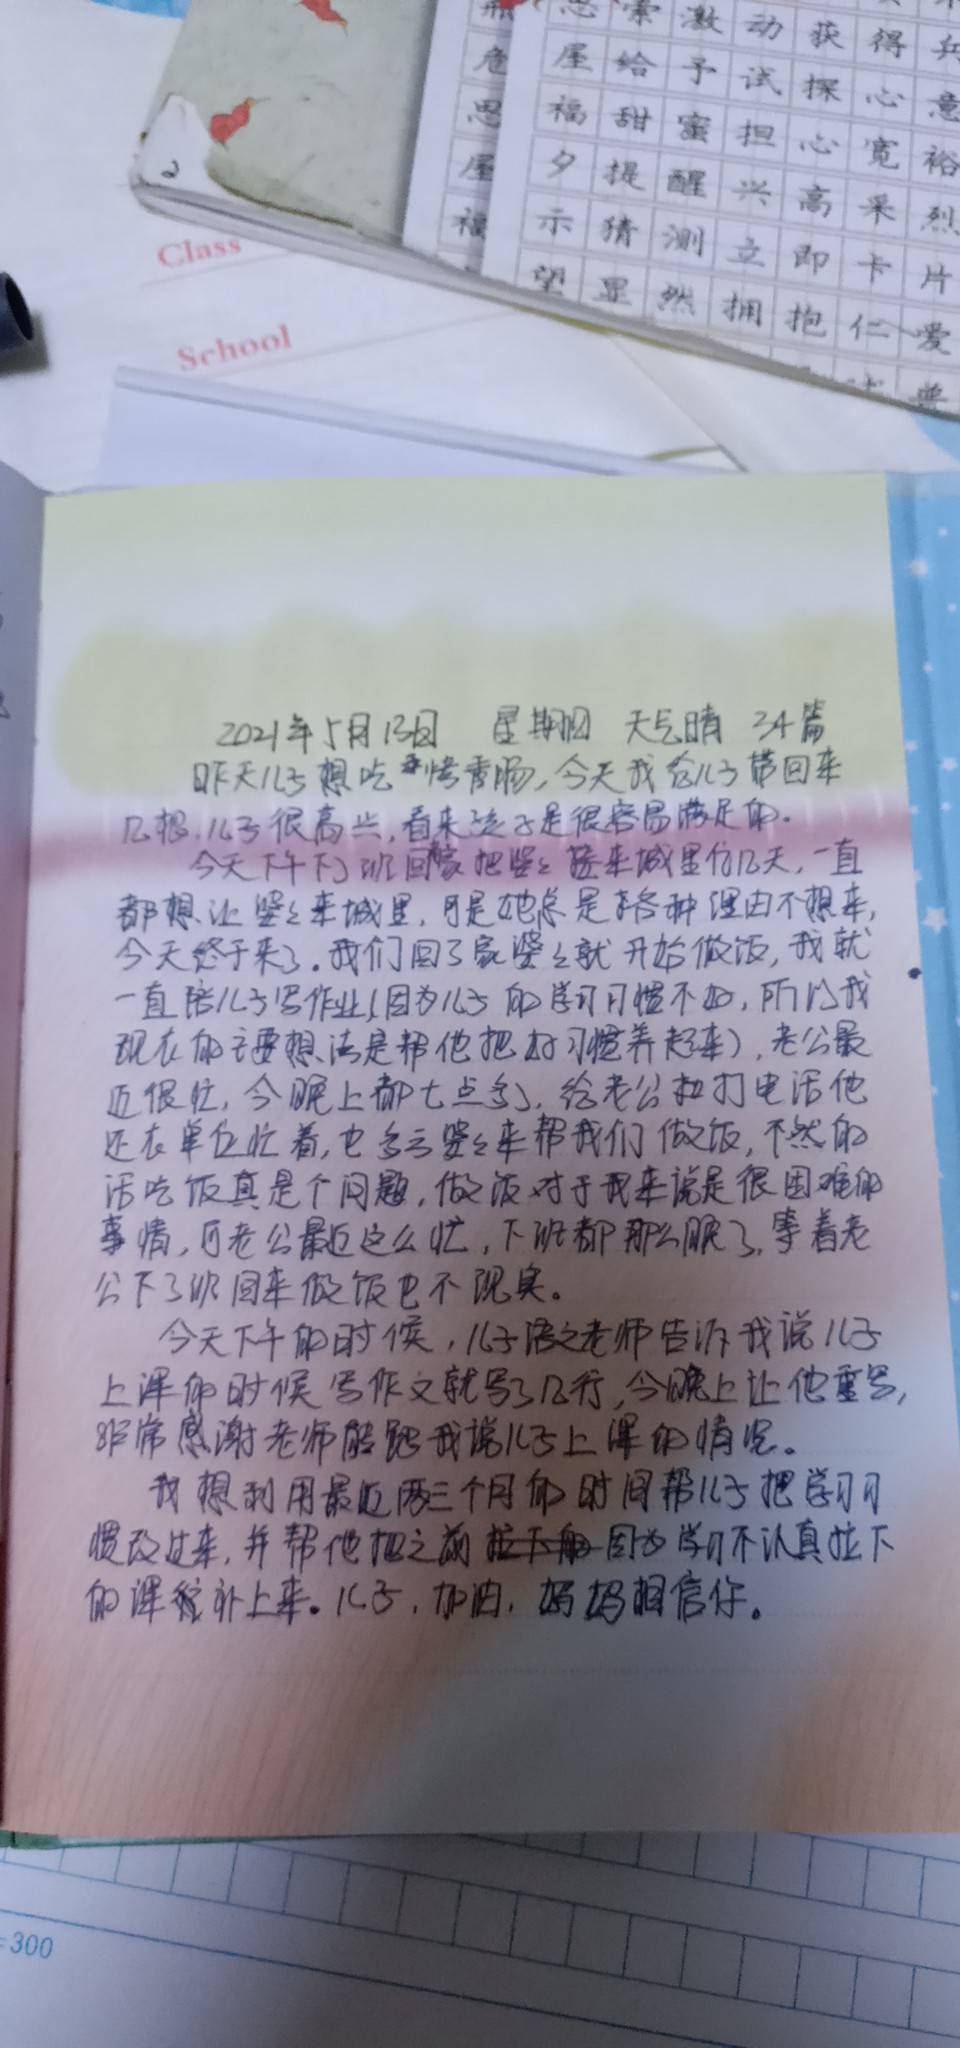 思索激动获得兵
危 屋给予试探心意
思 福甜蜜担心宽裕
屋 夕提醒兴高采烈
福 示猜测立即卡片
望显然拥抱仁爱
普
2
Class
School
2021年5月13日 星期四 天气晴 34篇
昨天儿子想吃烤香肠,今天我给儿子带回来
几根,儿子很高兴,看来孩子是很容易满足的。
今天下午下了班回家把婆婆接来城里住几天,一直
都想让婆婆来城里,可是她总是各种理由不想来,
今天终于来了。我们回了家婆婆就开始做饭,我就
一直陪儿子写作业(因为儿子的学习习惯不好,所以我
现在的主要想法是帮他把好习惯养起来),老公最
近很忙,今晚上都七点多了,给老公打电话他
还在单位忙着,也多亏婆婆来帮我们做饭,不然的
话吃饭真是个问题,做饭对于我来说是很困难的
事情,可老公最近这么忙,下班都那么晚了,等着老
公下了班回来做饭也不现实。
今天下午的时候,儿子语文老师告诉我说儿子
上课的时候写作文就写了几行,今晚上让他重写,
非常感谢老师能跟我说儿子上课的情况。
我想利用最近两三个月的时间帮儿子把学习习
惯改过来,并帮他把之前因为学习不认真拉下
的课程补上来。儿子,加油,妈妈相信你。
=300